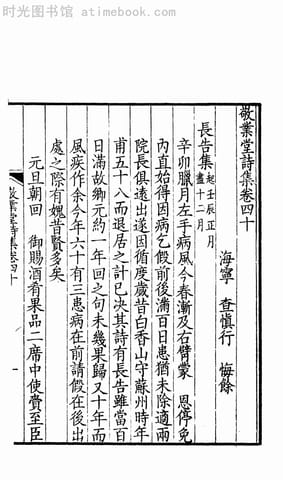 时光图书馆 atimebook.com
敬業堂詩集卷四十
海寧 查慎行 悔餘
長告集起壬辰正月盡十二月
辛卯臘月左手病風今春漸及右臂蒙 恩停免
內直始得因病乞假前後滿百日患猶未除適兩
院長俱遠出遂因循度歲昔白香山守蘇州時年
甫五十八而退居之計已決其詩有長告雖當百
日滿故鄉元約一年回之句未幾果歸又十年而
風疾作余今年六十有三患病在前請假在後出
處之際有媿昔賢多矣
元旦朝回 御賜酒肴果品二席中使賫至臣
敬業堂詩集卷四十
一